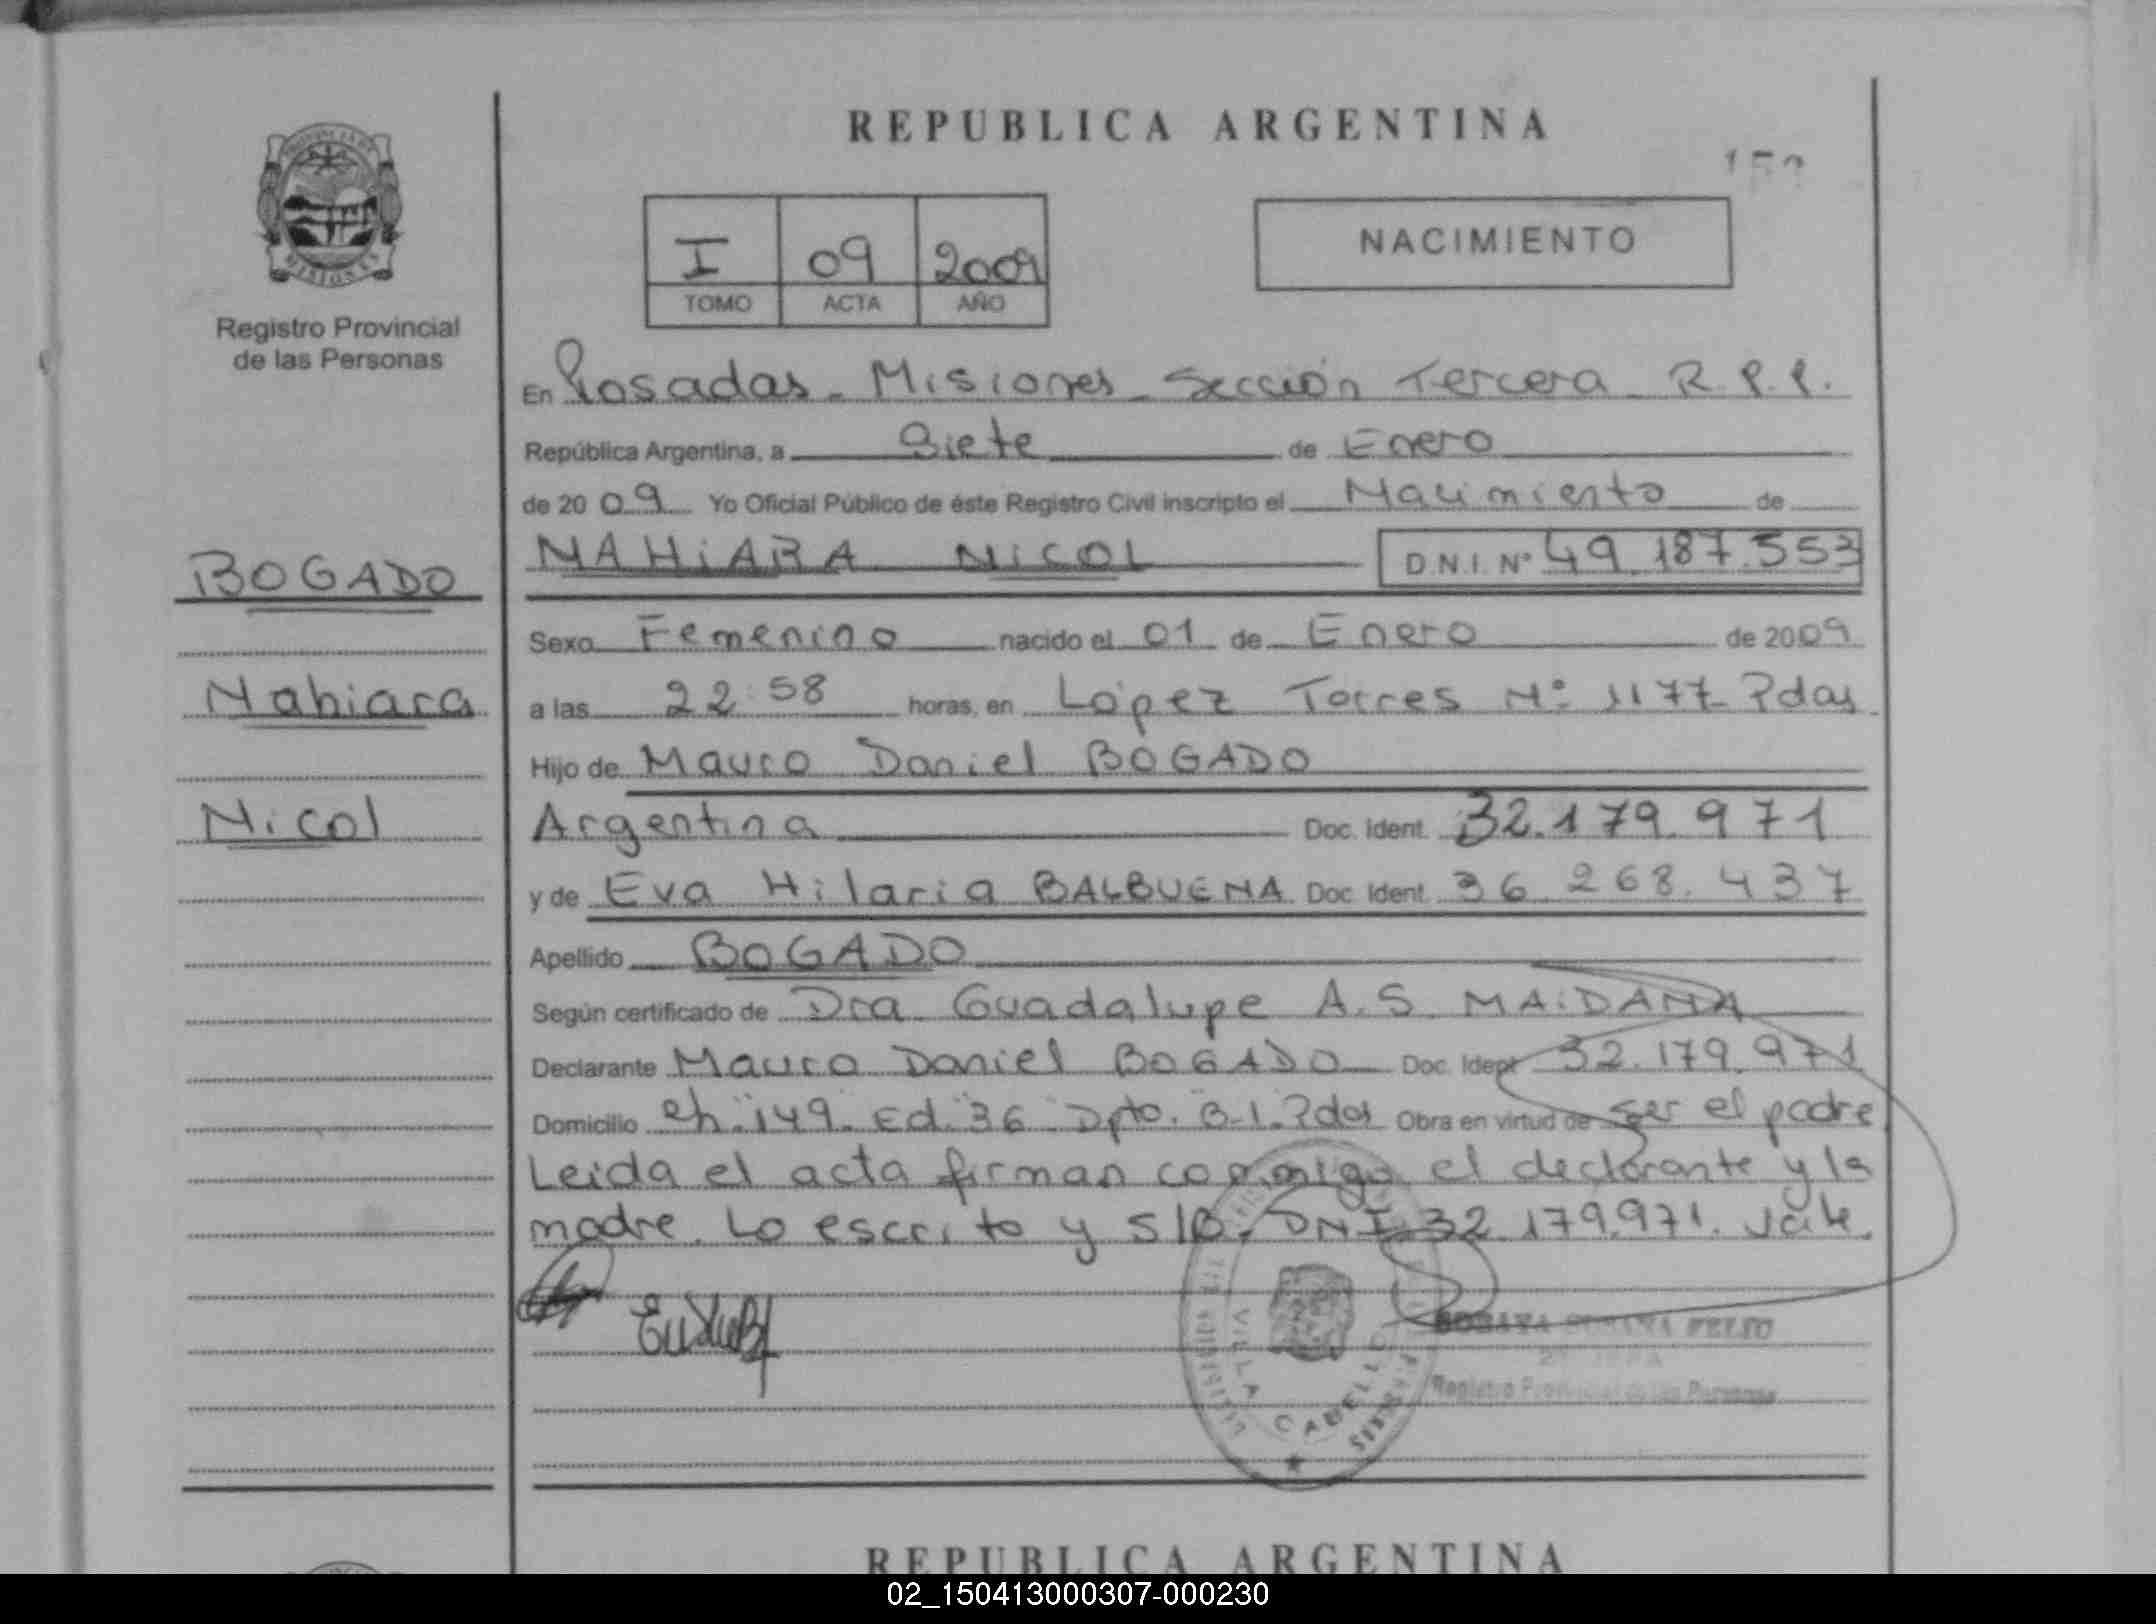 REPUBLICA ARGENTINA
I 09 2009
TOMO ACTA AÑO
NACIMIENTO
PROVINCIA DE MISIONES
Registro Provincial
de las Personas
En Posadas - Misiones - Sección Tercera R.P.P.
República Argentina, a Siete de Enero
de 2009 Yo Oficial Público de éste Registro Civil inscripto el Nacimiento de
BOGADO
NAHiARA NiCOL D.N.I. Nº 49.187.553
Sexo Femenino nacido el 01 de Enero de 2009
Nahiara
a las 22:58 horas, en López Torres Nº 1177 - Pdas
Hijo de Mauro Daniel BOGADO
Nicol
Argentina Doc. Ident. 32.179.971
y de Eva Hilaria BALBUENA Doc. Ident. 36.268.437
Apellido BOGADO
Según certificado de Dra. Guadalupe A.S. MAiDANA
Declarante Mauro Daniel BOGADO Doc. Ident 32.179.971
Domicilio Ch. 149. Ed. 36 Dpto. B-1. Pdas Obra en virtud de ser el padre
Leida el acta firman conmigo el declarante y la
madre. Lo escrito y S/B: DNI 32.179.971. Vale.
VILLA CABELLO
Registro Provincial de las Personas
REPUBLICA ARGENTINA
02_150413000307-000230